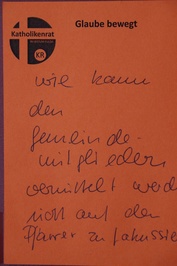 Katholikenrat
KR
Glaube bewegt
wie kann
den
gemeinde-
mitgliedern
vermittelt werd
nicht auf den
Pfarrer zu fokussie